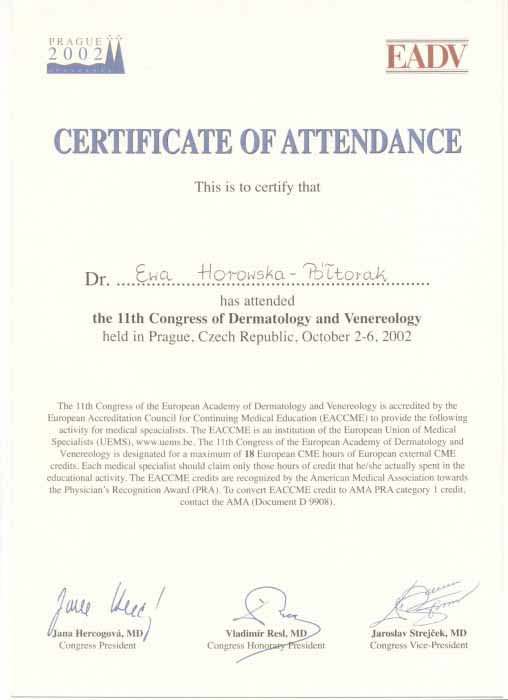 PRAGUE
2002
EADV
CERTIFICATE OF ATTENDANCE
This is to certify that
Dr. Ewa Horowska-Półtorak
has attended
the 11th Congress of Dermatology and Venereology
held in Prague, Czech Republic, October 2-6, 2002
The 11th Congress of the European Academy of Dermatology and Venereology is accredited by the
European Accreditation Council for Continuing Medical Education (EACCME) to provide the following
activity for medical speacialists. The EACCME is an institution of the European Union of Medical
Specialists (UEMS), www.uems.be. The 11th Congress of the European Academy of Dermatology and
Venereology is designated for a maximum of 18 European CME hours of European external CME
credits. Each medical specialist should claim only those hours of credit that he/she actually spent in the
educational activity. The EACCME credits are recognized by the American Medical Association towards
the Physician's Recognition Award (PRA). To convert EACCME credit to AMA PRA category 1 credit,
contact the AMA (Document D 9908).
Jana Hercogová, MD
Congress President
Vladimír Resl, MD
Congress Honorary President
Jaroslav Strejček, MD
Congress Vice-President